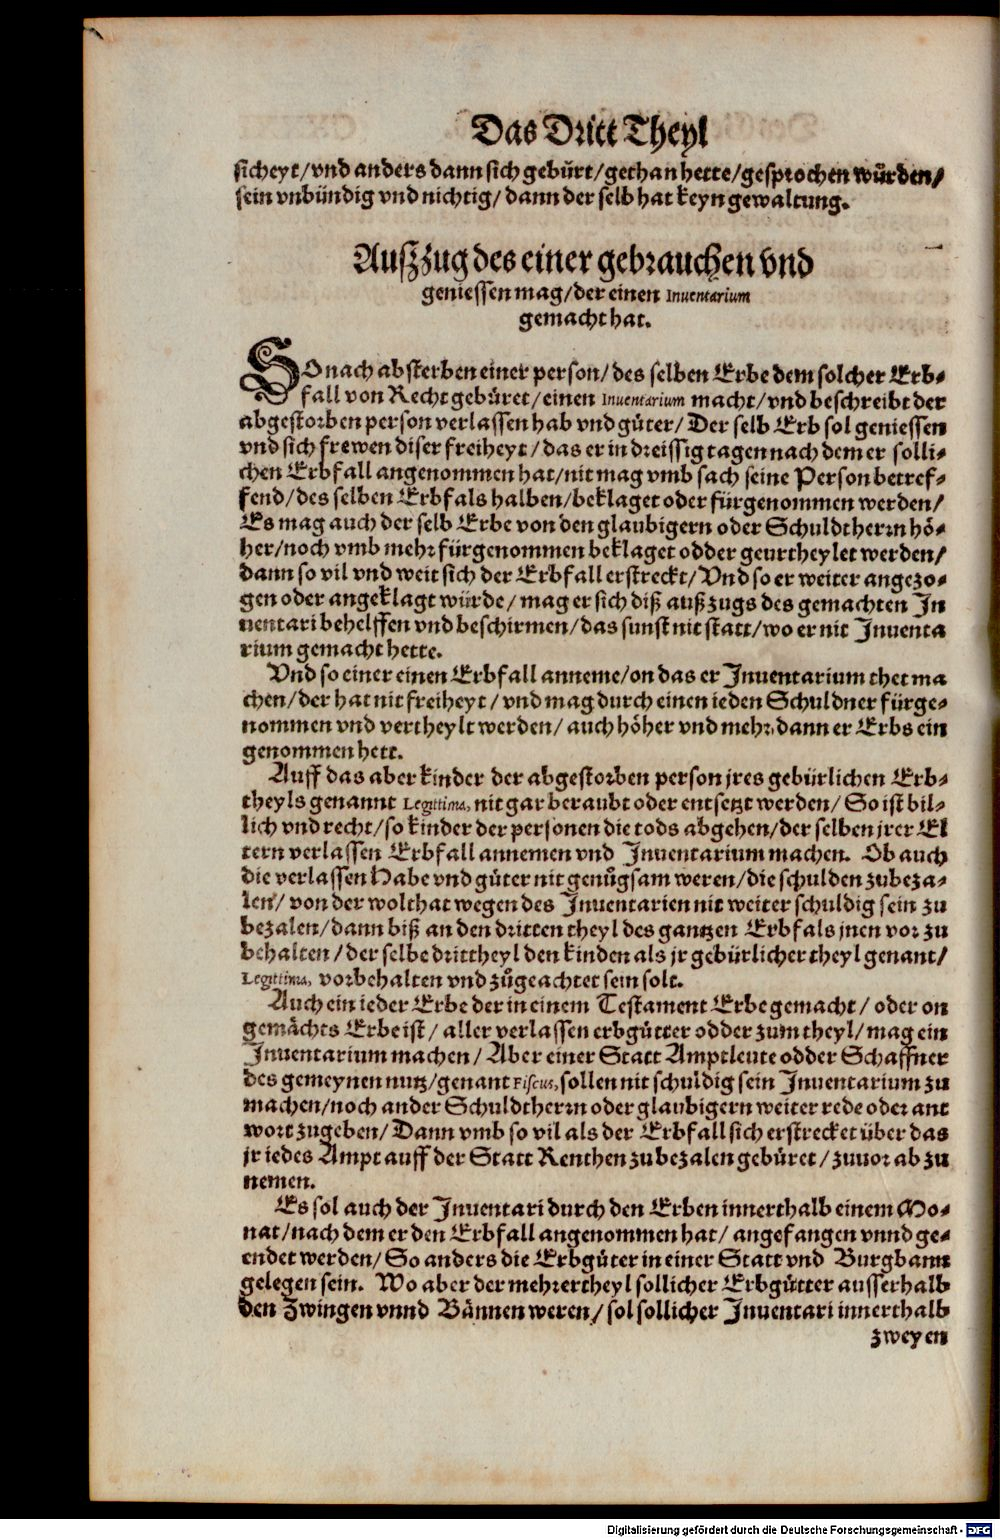 Das Dritt Theyl
sicheyt/vnd anders dann sich gebürt/gethan hette/gesprochen würden/
sein vnbündig vnd nichtig/ dann der selb hat keyn gewaltung.
Außzug des einer gebrauchen vnd
geniessen mag/der einen Inuentarium
gemacht hat.
SO nach absterben einer person/ des selben Erbe dem solcher Erb-
fall von Recht gebüret/einen Inuentarium macht/vnd beschreibt der
abgestorben person verlassen hab vnd güter/ Der selb Erb sol geniessen
vnd sich frewen diser freiheyt/das er in dreissig tagen nach dem er solli-
chen Erbfall angenommen hat/nit mag vmb sach seine Person betref-
fend/des selben Erbfals halben/beklaget oder fürgenommen werden/
Es mag auch der selb Erbe von den glaubigern oder Schuldtherrn hö-
her/noch vmb mehr fürgenommen beklaget odder geurtheylet werden/
dann so vil vnd weit sich der Erbfall erstreckt/Vnd so er weiter angezo-
gen oder angeklagt würde/ mag er sich diß außzugs des gemachten In
uentari behelffen vnd beschirmen/das sunst nit statt/wo er nit Inuenta
rium gemacht hette.
Vnd so einer einen Erbfall anneme/on das er Inuentarium thet ma
chen/der hat nit freiheyt/ vnd mag durch einen ieden Schuldner fürge-
nommen vnd vertheylt werden/ auch höher vnd mehr, dann er Erbs ein
genommen hett.
Auff das aber kinder der abgestorben person jres gebürlichen Erb-
theyls genannt Legittima, nit gar beraubt oder entsetzt werden/ So ist bil-
lich vnd recht/so kinder der personen die tods abgehen/der selben jrer El
tern verlassen Erbfall annemen vnd Inuentarium machen. Ob auch
die verlassen Habe vnd güter nit genůgsam weren/die schulden zubeza-
len/ von der wolthat wegen des Inuentarien nit weiter schuldig sein zu
bezalen/dann biß an den dritten theyl des gantzen Erbfals jnen vor zu
behalten/der selbe drittheyl den kinden als jr gebürlicher theyl genant/
Legittima, vorbehalten vnd zůgeachtet sein solt.
Auch ein ieder Erbe der in einem Testament Erbe gemacht/ oder on
gemächts Erbe ist/ aller verlassen erbgütter odder zum theyl/mag ein
Inuentarium machen/ Aber einer Statt Amptleute odder Schaffner
des gemeynen nutz/genant Fiscus, sollen nit schuldig sein Inuentarium zu
machen/noch ander Schuldtherrn oder glaubigern weiter rede oder ant
wort zugeben/Dann vmb so vil als der Erbfall sich erstrecket über das
jr iedes Ampt auff der Statt Renthen zubezalen gebüret/zuuor ab zu
nemen.
Es sol auch der Inuentari durch den Erben innerthalb einem Mo-
nat/nach dem er den Erbfall angenommen hat/ angefangen vnnd ge-
endet werden/ So anders die Erbgüter in einer Statt vnd Burgbann
gelegen sein. Wo aber der mehrertheyl sollicher Erbgütter ausserhalb
den Zwingen vnnd Bännen weren/ sol sollicher Inuentari innerthalb
zweyen
Digitalisierung gefördert durch die Deutsche Forschungsgemeinschaft - DFG